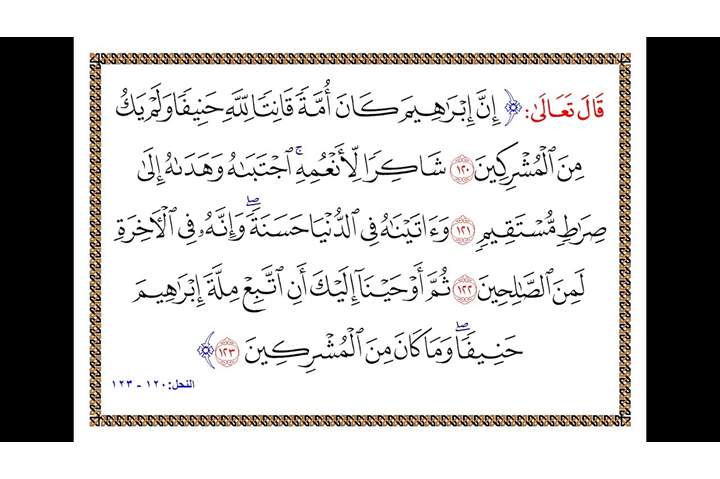 قَالَ تَعَالَىٰ: ﴿ إِنَّ إِبْرَاهِيمَ كَانَ أُمَّةً قَانِتًا لِّلَّهِ حَنِيفًا وَلَمْ يَكُ
مِنَ ٱلْمُشْرِكِينَ ١٢٠ شَاكِرًا لِّأَنْعُمِهِ ۚ ٱجْتَبَىٰهُ وَهَدَىٰهُ إِلَىٰ
صِرَاطٍ مُّسْتَقِيمٍ ١٢١ وَءَاتَيْنَٰهُ فِي ٱلدُّنْيَا حَسَنَةً ۖ وَإِنَّهُۥ فِي ٱلْءَاخِرَةِ
لَمِنَ ٱلصَّٰلِحِينَ ١٢٢ ثُمَّ أَوْحَيْنَآ إِلَيْكَ أَنِ ٱتَّبِعْ مِلَّةَ إِبْرَٰهِيمَ
حَنِيفًا ۖ وَمَا كَانَ مِنَ ٱلْمُشْرِكِينَ ١٢٣ ﴾
النحل: ١٢٠ - ١٢٣